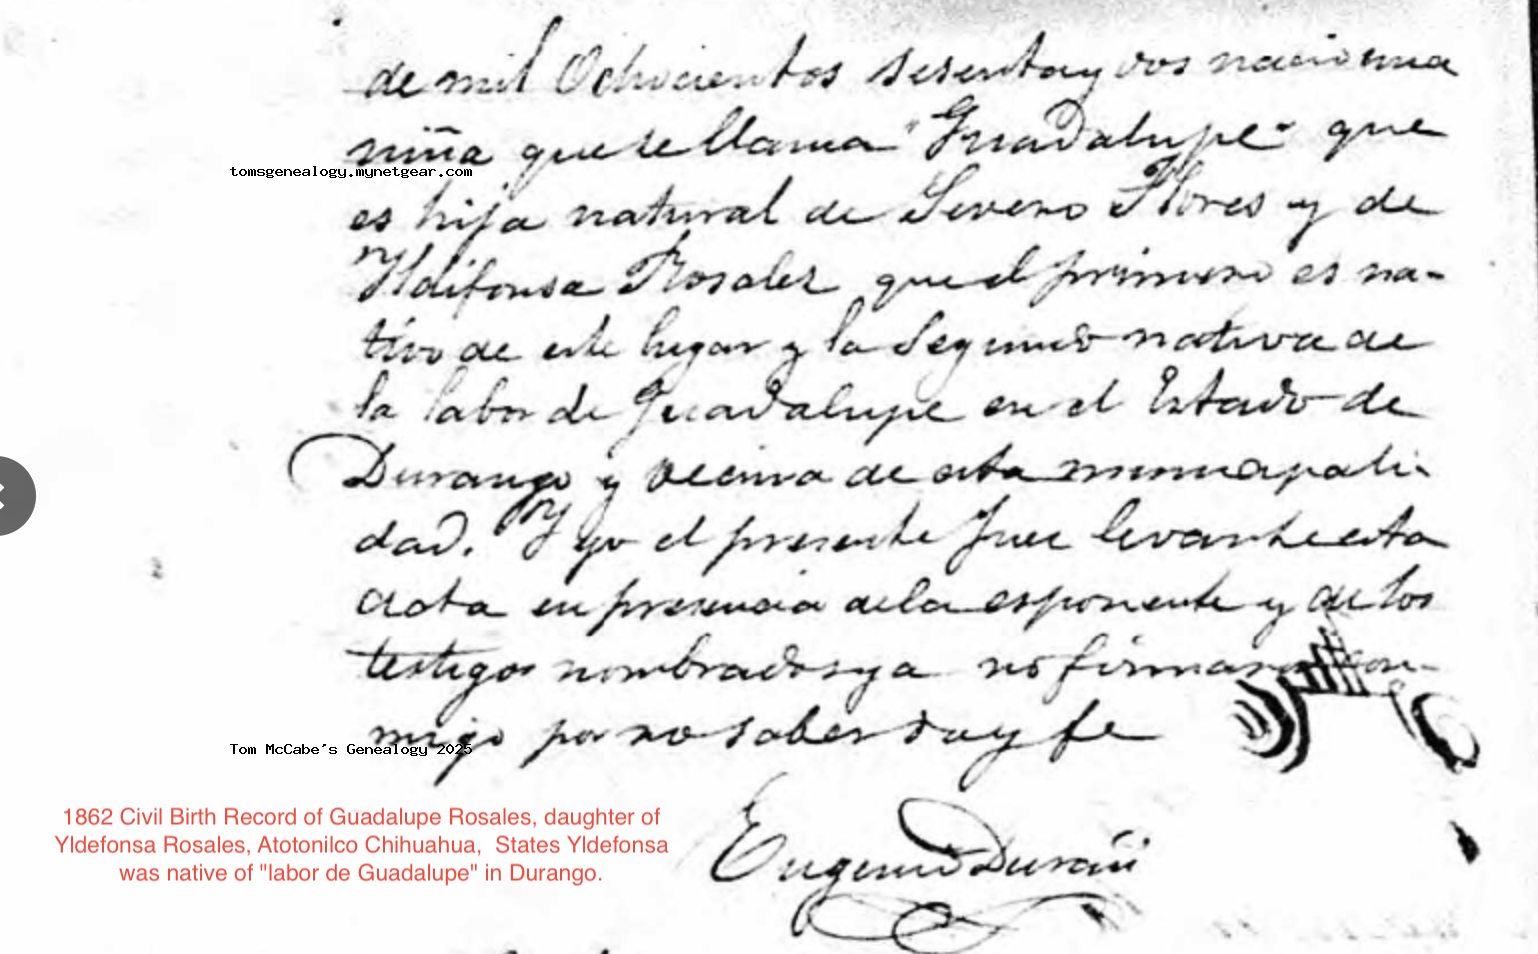 de mil Ochocientos sesenta y dos nacio una
niña que se llama "Guadalupe" que
tomsgenealogy.mynetgear.com
es hija natural de Severo Flores y de
Yldifonsa Rosales que el primero es na-
tivo de este lugar y la Segundo nativa de
la labor de Guadalupe en el Estado de
Durango y vecina de esta municipali-
dad. Y yo el presente Juez levante esta
acta en presencia de la esponente y de los
testigos nombrados ya no firmaron con-
migo por no saber doy fe
Tom McCabe's Genealogy 2025
1862 Civil Birth Record of Guadalupe Rosales, daughter of
Yldefonsa Rosales, Atotonilco Chihuahua, States Yldefonsa
was native of "labor de Guadalupe" in Durango.
Eugenio